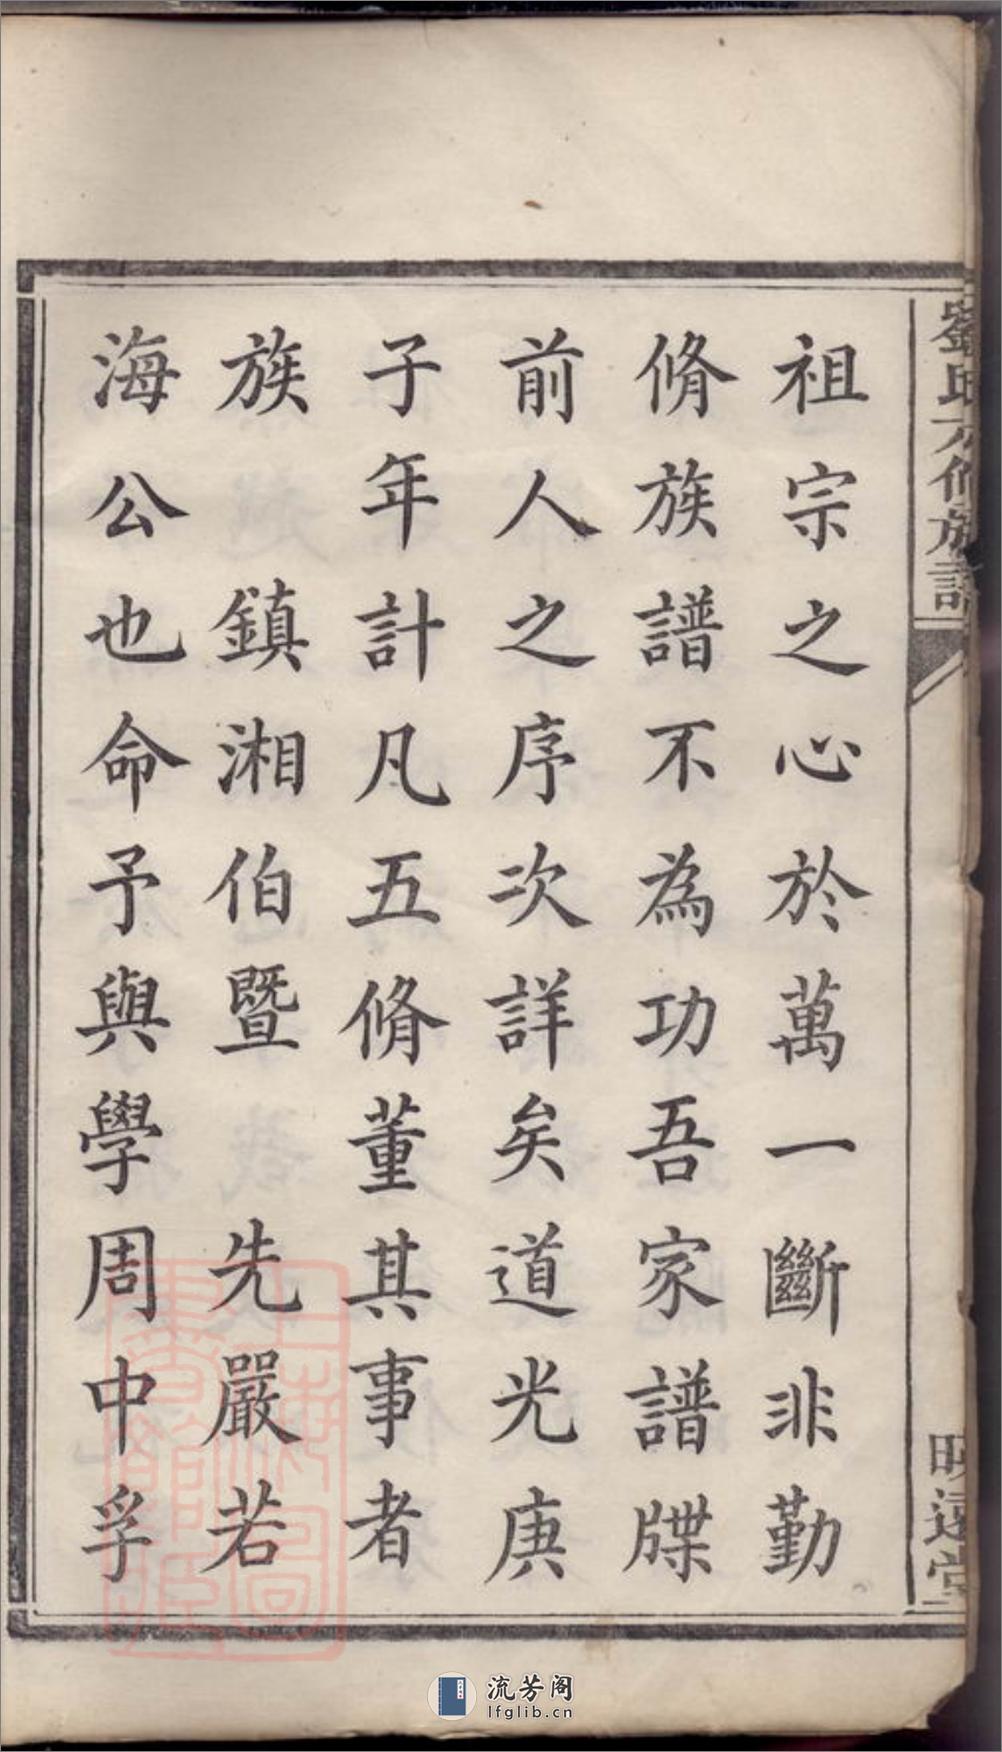 劉氏六修族譜
明遠堂
祖宗之心於萬一斷非勤
脩族譜不為功吾家譜牒
前人之序次詳矣道光庚
子年計凡五脩董其事者
族 鎮湘伯暨 先嚴若
海公也命予與學周中孚
上海圖書館藏
流芳阁
lfglib.cn